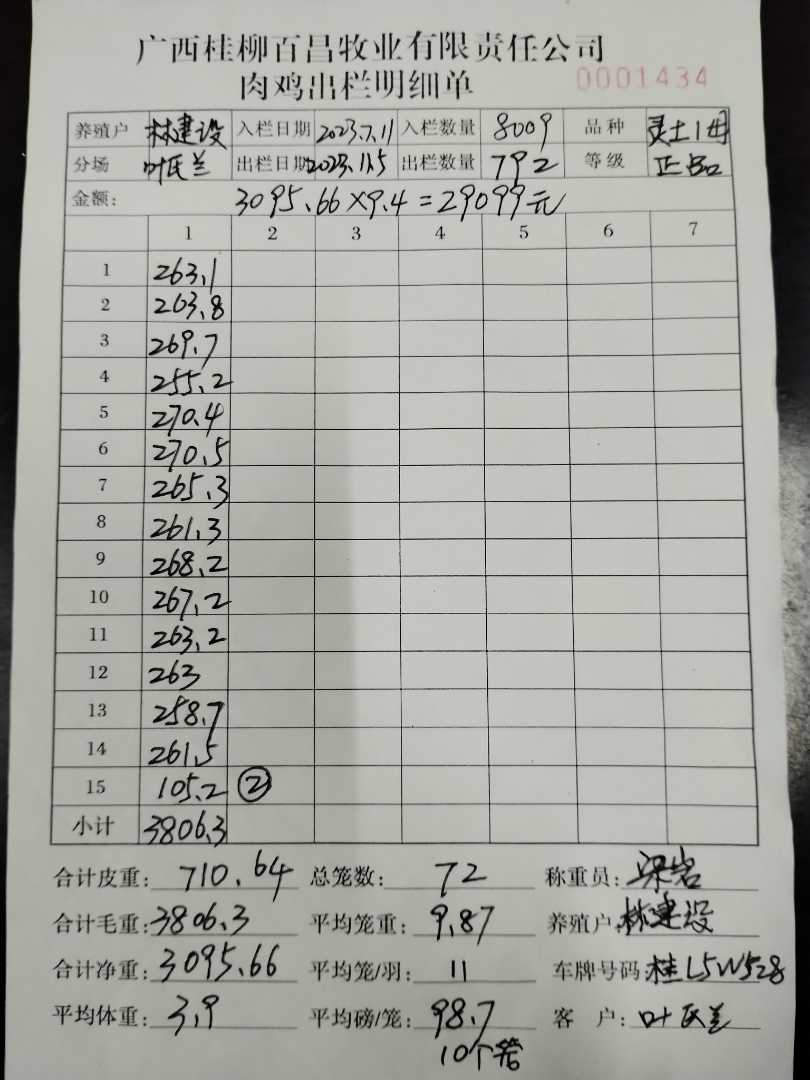 广西桂柳百昌牧业有限责任公司
肉鸡出栏明细单 0001434
养殖户 林建设 入栏日期 2023.7.11 入栏数量 8009 品种 灵土1母
分场 叶氏兰 出栏日期 2023.11.5 出栏数量 792 等级 正品
金额: 3095.66×9.4=29099元
1 2 3 4 5 6 7
1 263.1
2 263.8
3 269.7
4 255.2
5 270.4
6 270.5
7 265.3
8 261.3
9 268.2
10 267.2
11 263.2
12 263
13 258.7
14 261.5
15 105.2 ②
小计 3806.3
合计皮重: 710.64 总笼数: 72 称重员: 梁岩
合计毛重: 3806.3 平均笼重: 9.87 养殖户: 林建设
合计净重: 3095.66 平均笼/羽: 11 车牌号码: 桂L5W528
平均体重: 3.9 平均磅/笼: 98.7 客户: 叶氏兰
10个